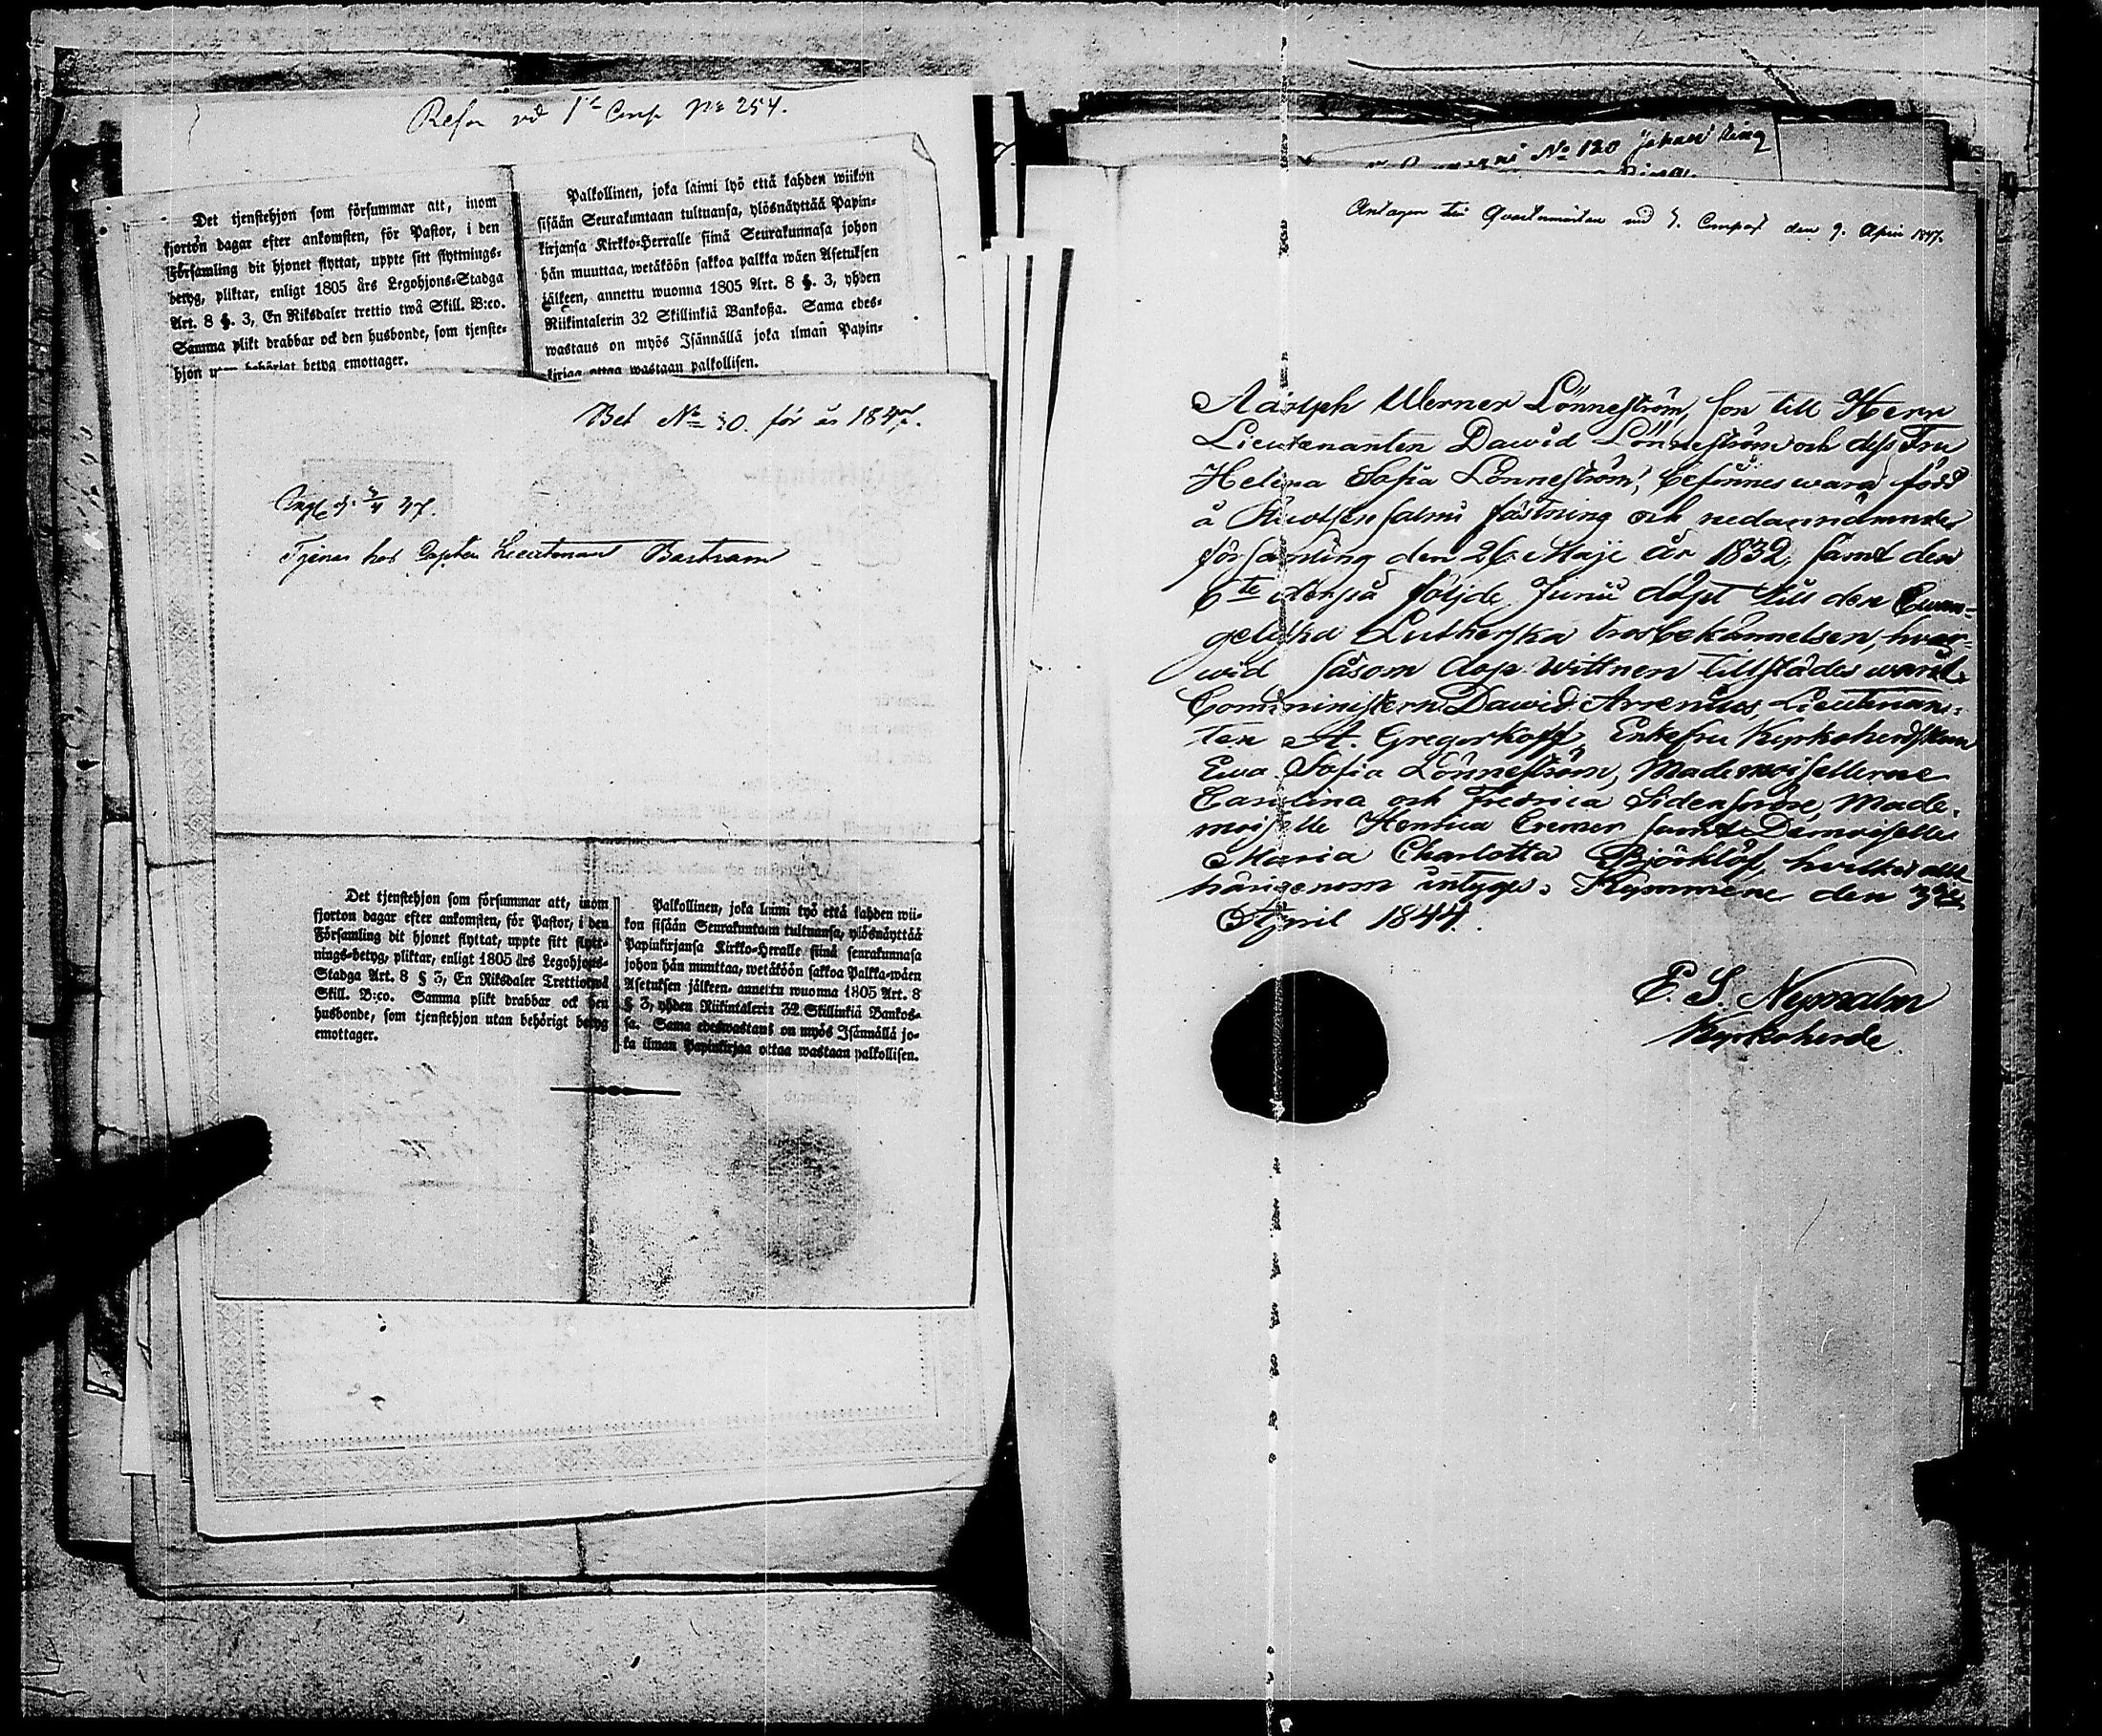 Refer vid 1st Comp No 254.
Det tjenstehjon som försummar att, inom
fjorton dagar efter ankomsten, för Pastor, i den
Församling dit hjonet flyttat, uppte sitt flyttnings-
betyg, pliktar, enligt 1805 års Legohjons-Stadga
Art. 8 §. 3, En Riksdaler trettio twå Skill. B:co.
Samma plikt drabbar ock den husbonde, som tjenste-
hjon utan behörigt betyg emottager.
Palkollinen, joka laimi lyö että kahden wiikon
sisään Seurakuntaan tultuansa, ylösnäyttää Papin-
kirjansa Kirkko-Herralle siinä Seurakunnasa johon
hän muuttaa, wetäköön sakkoa palkka wäen Asetuksen
jälkeen, annettu wuonna 1805 Art. 8 §. 3, yhden
Riikintalerin 32 Skillinkiä Bankoßa. Sama edes-
wastaus on myös Isännällä joka ilman Papin-
kirjaa ottaa wastaan palkollisen.
Bet No 30. för år 1847.
Tjenar hos Capten Lieutenant Bartram
Det tjenstehjon som försummar att, inom
fjorton dagar efter ankomsten, för Pastor, i den
Församling dit hjonet flyttat, uppte sitt flytt-
nings-betyg, pliktar, enligt 1805 års Legohjons-
Stadga Art. 8 § 3, En Riksdaler Trettiotwå
Skill. B:co. Samma plikt drabbar ock den
husbonde, som tjenstehjon utan behörigt betyg
emottager.
Palkollinen, joka laimi lyö että kahden wii-
kon sisään Seurakuntaan tultuansa, ylösnäyttää
Papinkirjansa Kirkko-Heralle siinä seurakunnasa
johon hän muuttaa, wetäköön sakkoa Palkka-wäen
Asetuksen jälkeen, annettu wuonna 1805 Art. 8
§ 3, yhden Riikintalerin 32 Skillinkiä Bankos-
sa. Sama edeswastaus on myös Isännällä jo-
ka ilman Papinkirjaa ottaa wastaan palkollisen.
No 120 Johan Ring
Antagen till Qvartermästare vid 3. Compat den 9. April 1847.
Adolph Werner Lönneström, son till Herr
Lieutenanten Dawid Lönneström och dess Fru
Helena Sofia Lönneström, befinnes wara född
å Ruotsensalmi fästning och nedannämnde
församling den 26 Maji år 1832, samt den
6te derpå följde Junii döpt till den Evan-
geliska Lutherska trosbekännelsen, hvar-
wid såsom dop-wittnen tillstädes warit
Comministern Dawid Arrenius, Lieutenan-
ten A. Gregorkoff, Enkefru Kyrkoherdskan
Ewa Sofia Lönneström, Mademoisellerne
Carolina och Fredrica Sidensnöre, Made-
moiselle Henrica Cremer samt Demoiselle
Maria Charlotta Björklöf, hvilket allt
härigenom intygas. Kymmene den 3de
April 1844.
E. S. Nymalm
Kyrkoherde.